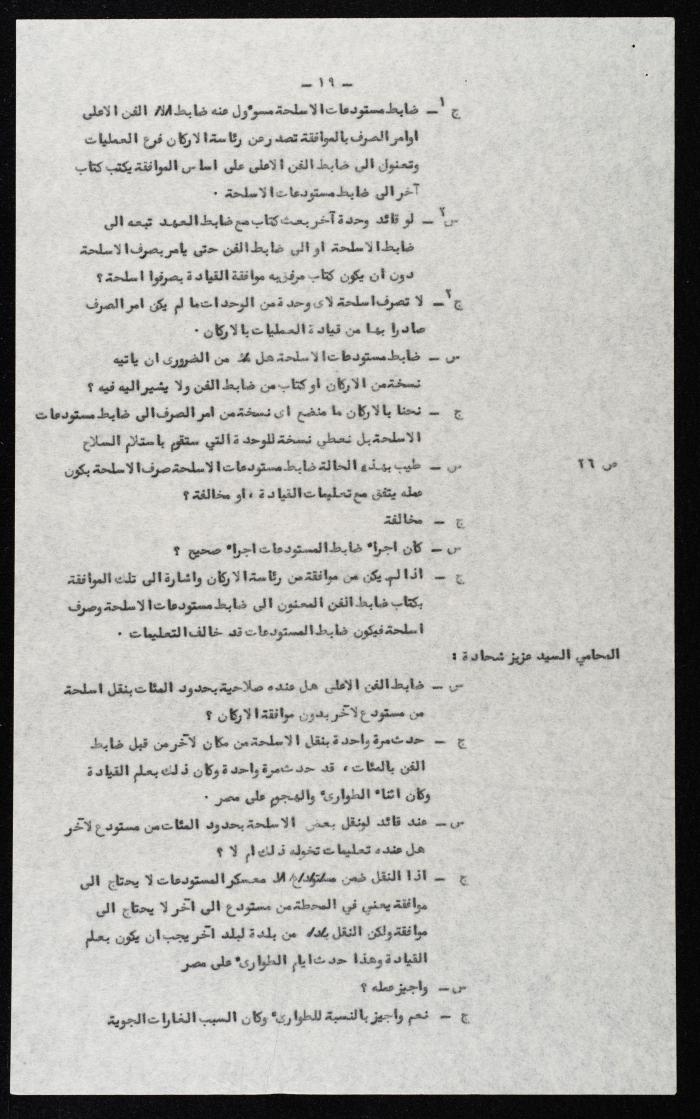 - ١٩ -
ج١ - ضابط مستودعات الاسلحة مسوٴول عنه ضابط الفن الاعلى
اوامر الصرف بالموافقة تصدر عن رئاسة الاركان فرع العمليات
وتعنول الى ضابط الفن الاعلى على اساس الموافقة يكتب كتاب
آخر الى ضابط مستودعات الاسلحة ٠
س٢ - لو قائد وحدة آخر بعث كتاب مع ضابط العهد تبعه الى
ضابط الاسلحة او الى ضابط الفن حتى يامر بصرف الاسلحة
دون ان يكون كتاب مرفق به موافقة القيادة بصرفوا اسلحة ؟
ج٢ - لا تصرف اسلحة لاى وحدة من الوحدات ما لم يكن امر الصرف
صادرا بها من قيادة العمليات بالاركان ٠
س - ضابط مستودعات الاسلحة هل من الضرورى ان ياتيه
نسخة من الاركان او كتاب من ضابط الفن ولا يشير اليه فيه ؟
ج - نحنا بالاركان ما منضع اى نسخة من امر الصرف الى ضابط مستودعات
الاسلحة بل نعطي نسخة للوحدة التي ستقوم باستلام السلاح
ص ٢٦
س - طيب بهذه الحالة ضابط مستودعات الاسلحة صرف الاسلحة بكون
عمله يتفق مع تعليمات القيادة ، او مخالفة ؟
ج - مخالفة
س - كان اجراء ضابط المستودعات اجراء صحيح ؟
ج - اذا لم يكن من موافقة من رئاسة الاركان واشارة الى تلك الموافقة
بكتاب ضابط الفن المعنون الى ضابط مستودعات الاسلحة وصرف
اسلحة فيكون ضابط المستودعات قد خالف التعليمات ٠
المحامي السيد عزيز شحادة :
س - ضابط الفن الاعلى هل عنده صلاحية بحدود المئات بنقل اسلحة
من مستودع لآخر بدون موافقة الاركان ؟
ج - حدث مرة واحدة بنقل الاسلحة من مكان لآخر من قبل ضابط
الفن بالمئات ، قد حدث مرة واحدة وكان ذلك بعلم القيادة
وكان اثناء الطوارىء والهجوم على مصر ٠
س - عند قائد لونقل بعض الاسلحة بحدود المئات من مستودع لآخر
هل عنده تعليمات تخوله ذلك ام لا ؟
ج - اذا النقل ضمن معسكر المستودعات لا يحتاج الى
موافقة يعني في المحطة من مستودع الى آخر لا يحتاج الى
موافقة ولكن النقل من بلدة لبلد آخر يجب ان يكون بعلم
القيادة وهذا حدث ايام الطوارىء على مصر
س - واجيز عمله ؟
ج - نعم واجيز بالنسبة للطوارىء وكان السبب الغارات الجوية